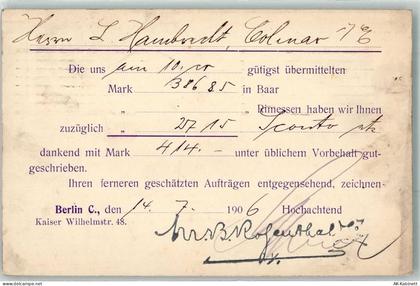 Herrn L. Hambrecht, Colmar i/E
Die uns am 10. cr gütigst übermittelten
Mark 386 85 in Baar
" " Rimessen haben wir Ihnen
zuzüglich " 27 15 Sconto
dankend mit Mark 414.- unter üblichem Vorbehalt gut-
geschrieben.
Ihren ferneren geschätzten Aufträgen entgegensehend, zeichnen
Berlin C., den 14. 7. 1906 Hochachtend
Kaiser Wilhelmstr. 48.
Rosenthal
AK-Kabinett